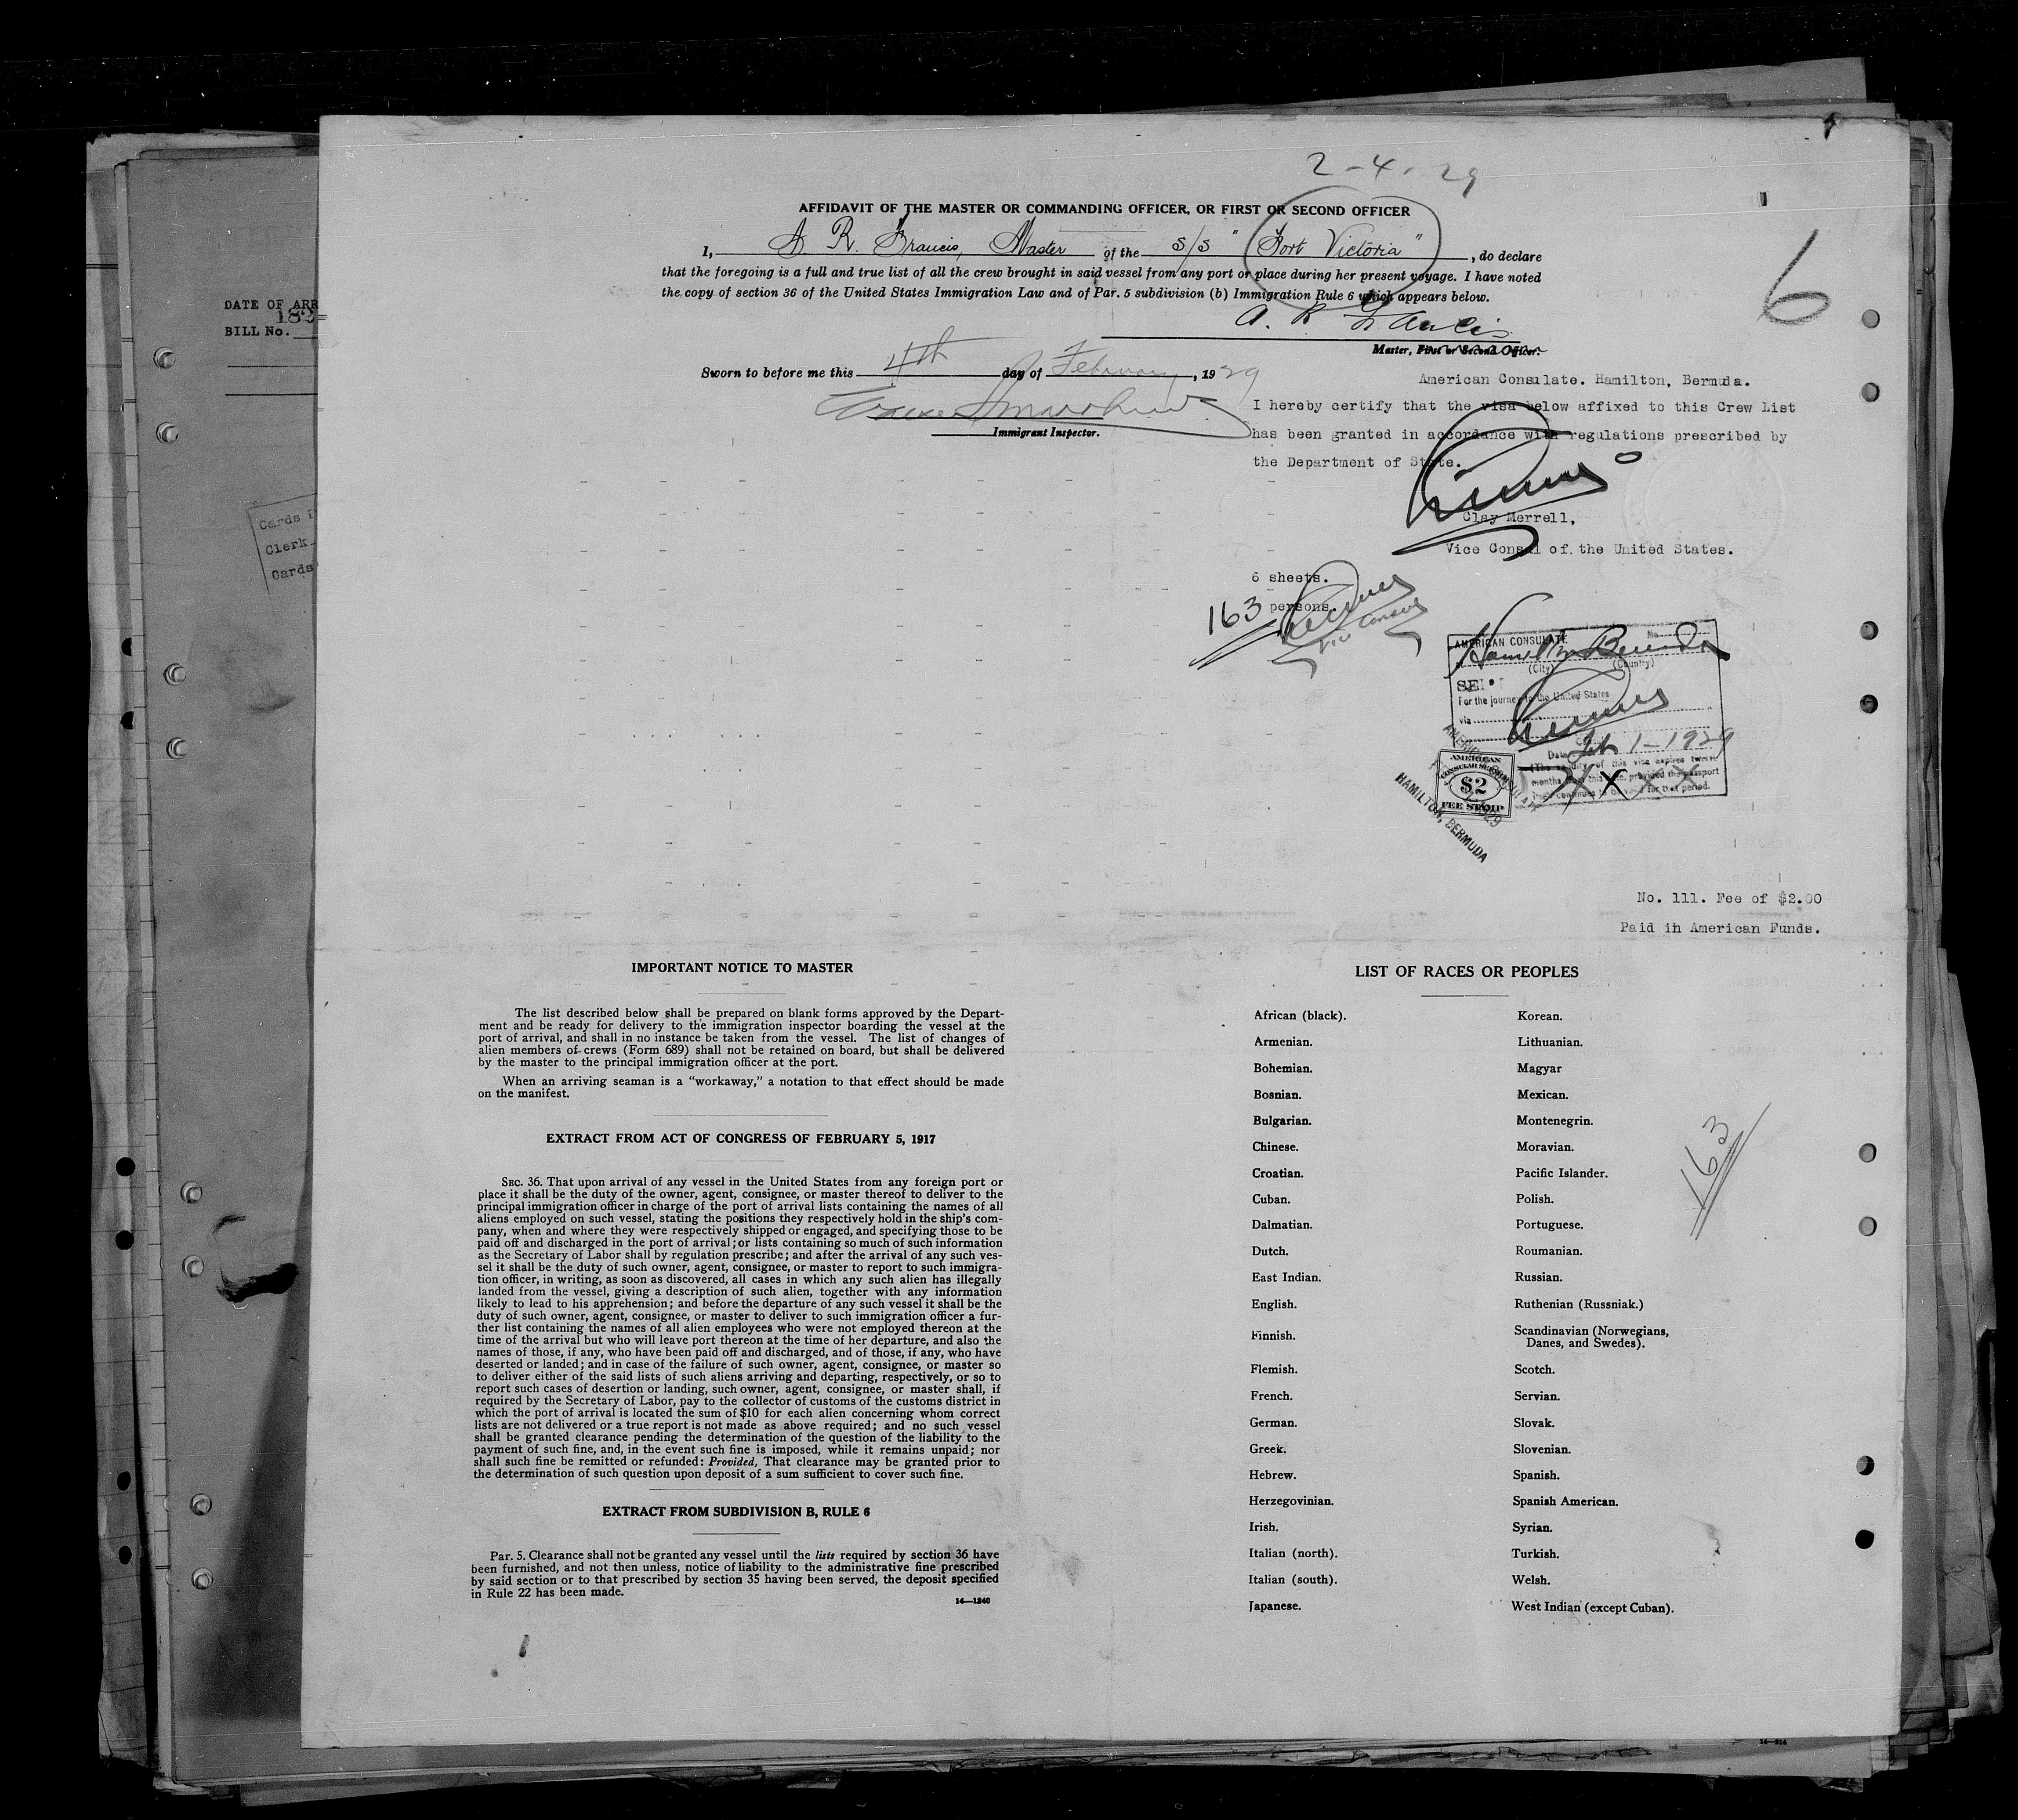 2-4-29
AFFIDAVIT OF THE MASTER OR COMMANDING OFFICER, OR FIRST OR SECOND OFFICER
I, A. R. Francis, Master of the s/s "Fort Victoria", do declare
that the foregoing is a full and true list of all the crew brought in said vessel from any port or place during her present voyage. I have noted
the copy of section 36 of the United States Immigration Law and of Par. 5 subdivision (b) Immigration Rule 6 which appears below.
6
A. R. Francis
Master, First or Second Officer.
Sworn to before me this 4th day of February, 1929
Immigrant Inspector.
DATE OF ARR
BILL No.
Cards
Clerk
Cards
American Consulate. Hamilton, Bermuda.
I hereby certify that the visa below affixed to this Crew List
has been granted in accordance with regulations prescribed by
the Department of State.
Clay Merrell,
Vice Consul of the United States.
6 sheets.
163 persons.
Vice Consul
AMERICAN CONSULATE
Hamilton Bermuda
(City) (Country)
For the journey to the United States
via
Date Feb 1-1929
(The validity of this visa expires twelve
months from this date, provided the passport
continues to be valid for that period.
AMERICAN
CONSULAR SERVICE
$2
FEE STAMP
HAMILTON, BERMUDA
No. 111. Fee of $2.00
Paid in American Funds.
IMPORTANT NOTICE TO MASTER
The list described below shall be prepared on blank forms approved by the Depart-
ment and be ready for delivery to the immigration inspector boarding the vessel at the
port of arrival, and shall in no instance be taken from the vessel. The list of changes of
alien members of crews (Form 689) shall not be retained on board, but shall be delivered
by the master to the principal immigration officer at the port.
When an arriving seaman is a "workaway," a notation to that effect should be made
on the manifest.
EXTRACT FROM ACT OF CONGRESS OF FEBRUARY 5, 1917
SEC. 36. That upon arrival of any vessel in the United States from any foreign port or
place it shall be the duty of the owner, agent, consignee, or master thereof to deliver to the
principal immigration officer in charge of the port of arrival lists containing the names of all
aliens employed on such vessel, stating the positions they respectively hold in the ship's com-
pany, when and where they were respectively shipped or engaged, and specifying those to be
paid off and discharged in the port of arrival; or lists containing so much of such information
as the Secretary of Labor shall by regulation prescribe; and after the arrival of any such ves-
sel it shall be the duty of such owner, agent, consignee, or master to report to such immigra-
tion officer, in writing, as soon as discovered, all cases in which any such alien has illegally
landed from the vessel, giving a description of such alien, together with any information
likely to lead to his apprehension; and before the departure of any such vessel it shall be the
duty of such owner, agent, consignee, or master to deliver to such immigration officer a fur-
ther list containing the names of all alien employees who were not employed thereon at the
time of the arrival but who will leave port thereon at the time of her departure, and also the
names of those, if any, who have been paid off and discharged, and of those, if any, who have
deserted or landed; and in case of the failure of such owner, agent, consignee, or master so
to deliver either of the said lists of such aliens arriving and departing, respectively, or so to
report such cases of desertion or landing, such owner, agent, consignee, or master shall, if
required by the Secretary of Labor, pay to the collector of customs of the customs district in
which the port of arrival is located the sum of $10 for each alien concerning whom correct
lists are not delivered or a true report is not made as above required; and no such vessel
shall be granted clearance pending the determination of the question of the liability to the
payment of such fine, and, in the event such fine is imposed, while it remains unpaid; nor
shall such fine be remitted or refunded: Provided, That clearance may be granted prior to
the determination of such question upon deposit of a sum sufficient to cover such fine.
EXTRACT FROM SUBDIVISION B, RULE 6
Par. 5. Clearance shall not be granted any vessel until the lists required by section 36 have
been furnished, and not then unless, notice of liability to the administrative fine prescribed
by said section or to that prescribed by section 35 having been served, the deposit specified
in Rule 22 has been made.
14—1240
LIST OF RACES OR PEOPLES
African (black).
Armenian.
Bohemian.
Bosnian.
Bulgarian.
Chinese.
Croatian.
Cuban.
Dalmatian.
Dutch.
East Indian.
English.
Finnish.
Flemish.
French.
German.
Greek.
Hebrew.
Herzegovinian.
Irish.
Italian (north).
Italian (south).
Japanese.
Korean.
Lithuanian.
Magyar
Mexican.
Montenegrin.
Moravian.
Pacific Islander.
Polish.
Portuguese.
Roumanian.
Russian.
Ruthenian (Russniak.)
Scandinavian (Norwegians,
Danes, and Swedes).
Scotch.
Servian.
Slovak.
Slovenian.
Spanish.
Spanish American.
Syrian.
Turkish.
Welsh.
West Indian (except Cuban).
163